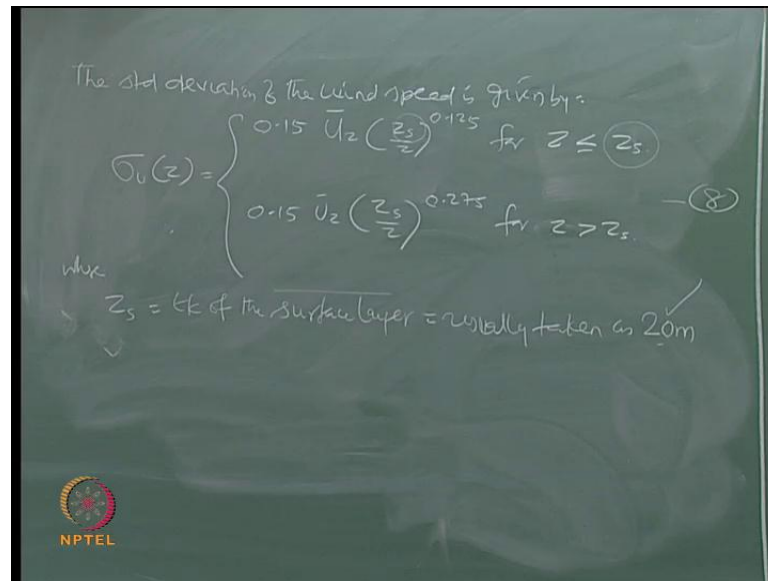 The std deviation of the wind speed is given by:
σᵤ(z) = { 0.15 Ū_z (z_s/z)^0.125 for z ≤ z_s.
0.15 Ū_z (z_s/z)^0.275 for z > z_s. —(8)
where
z_s = tk of the surface layer = usually taken as 20m
NPTEL